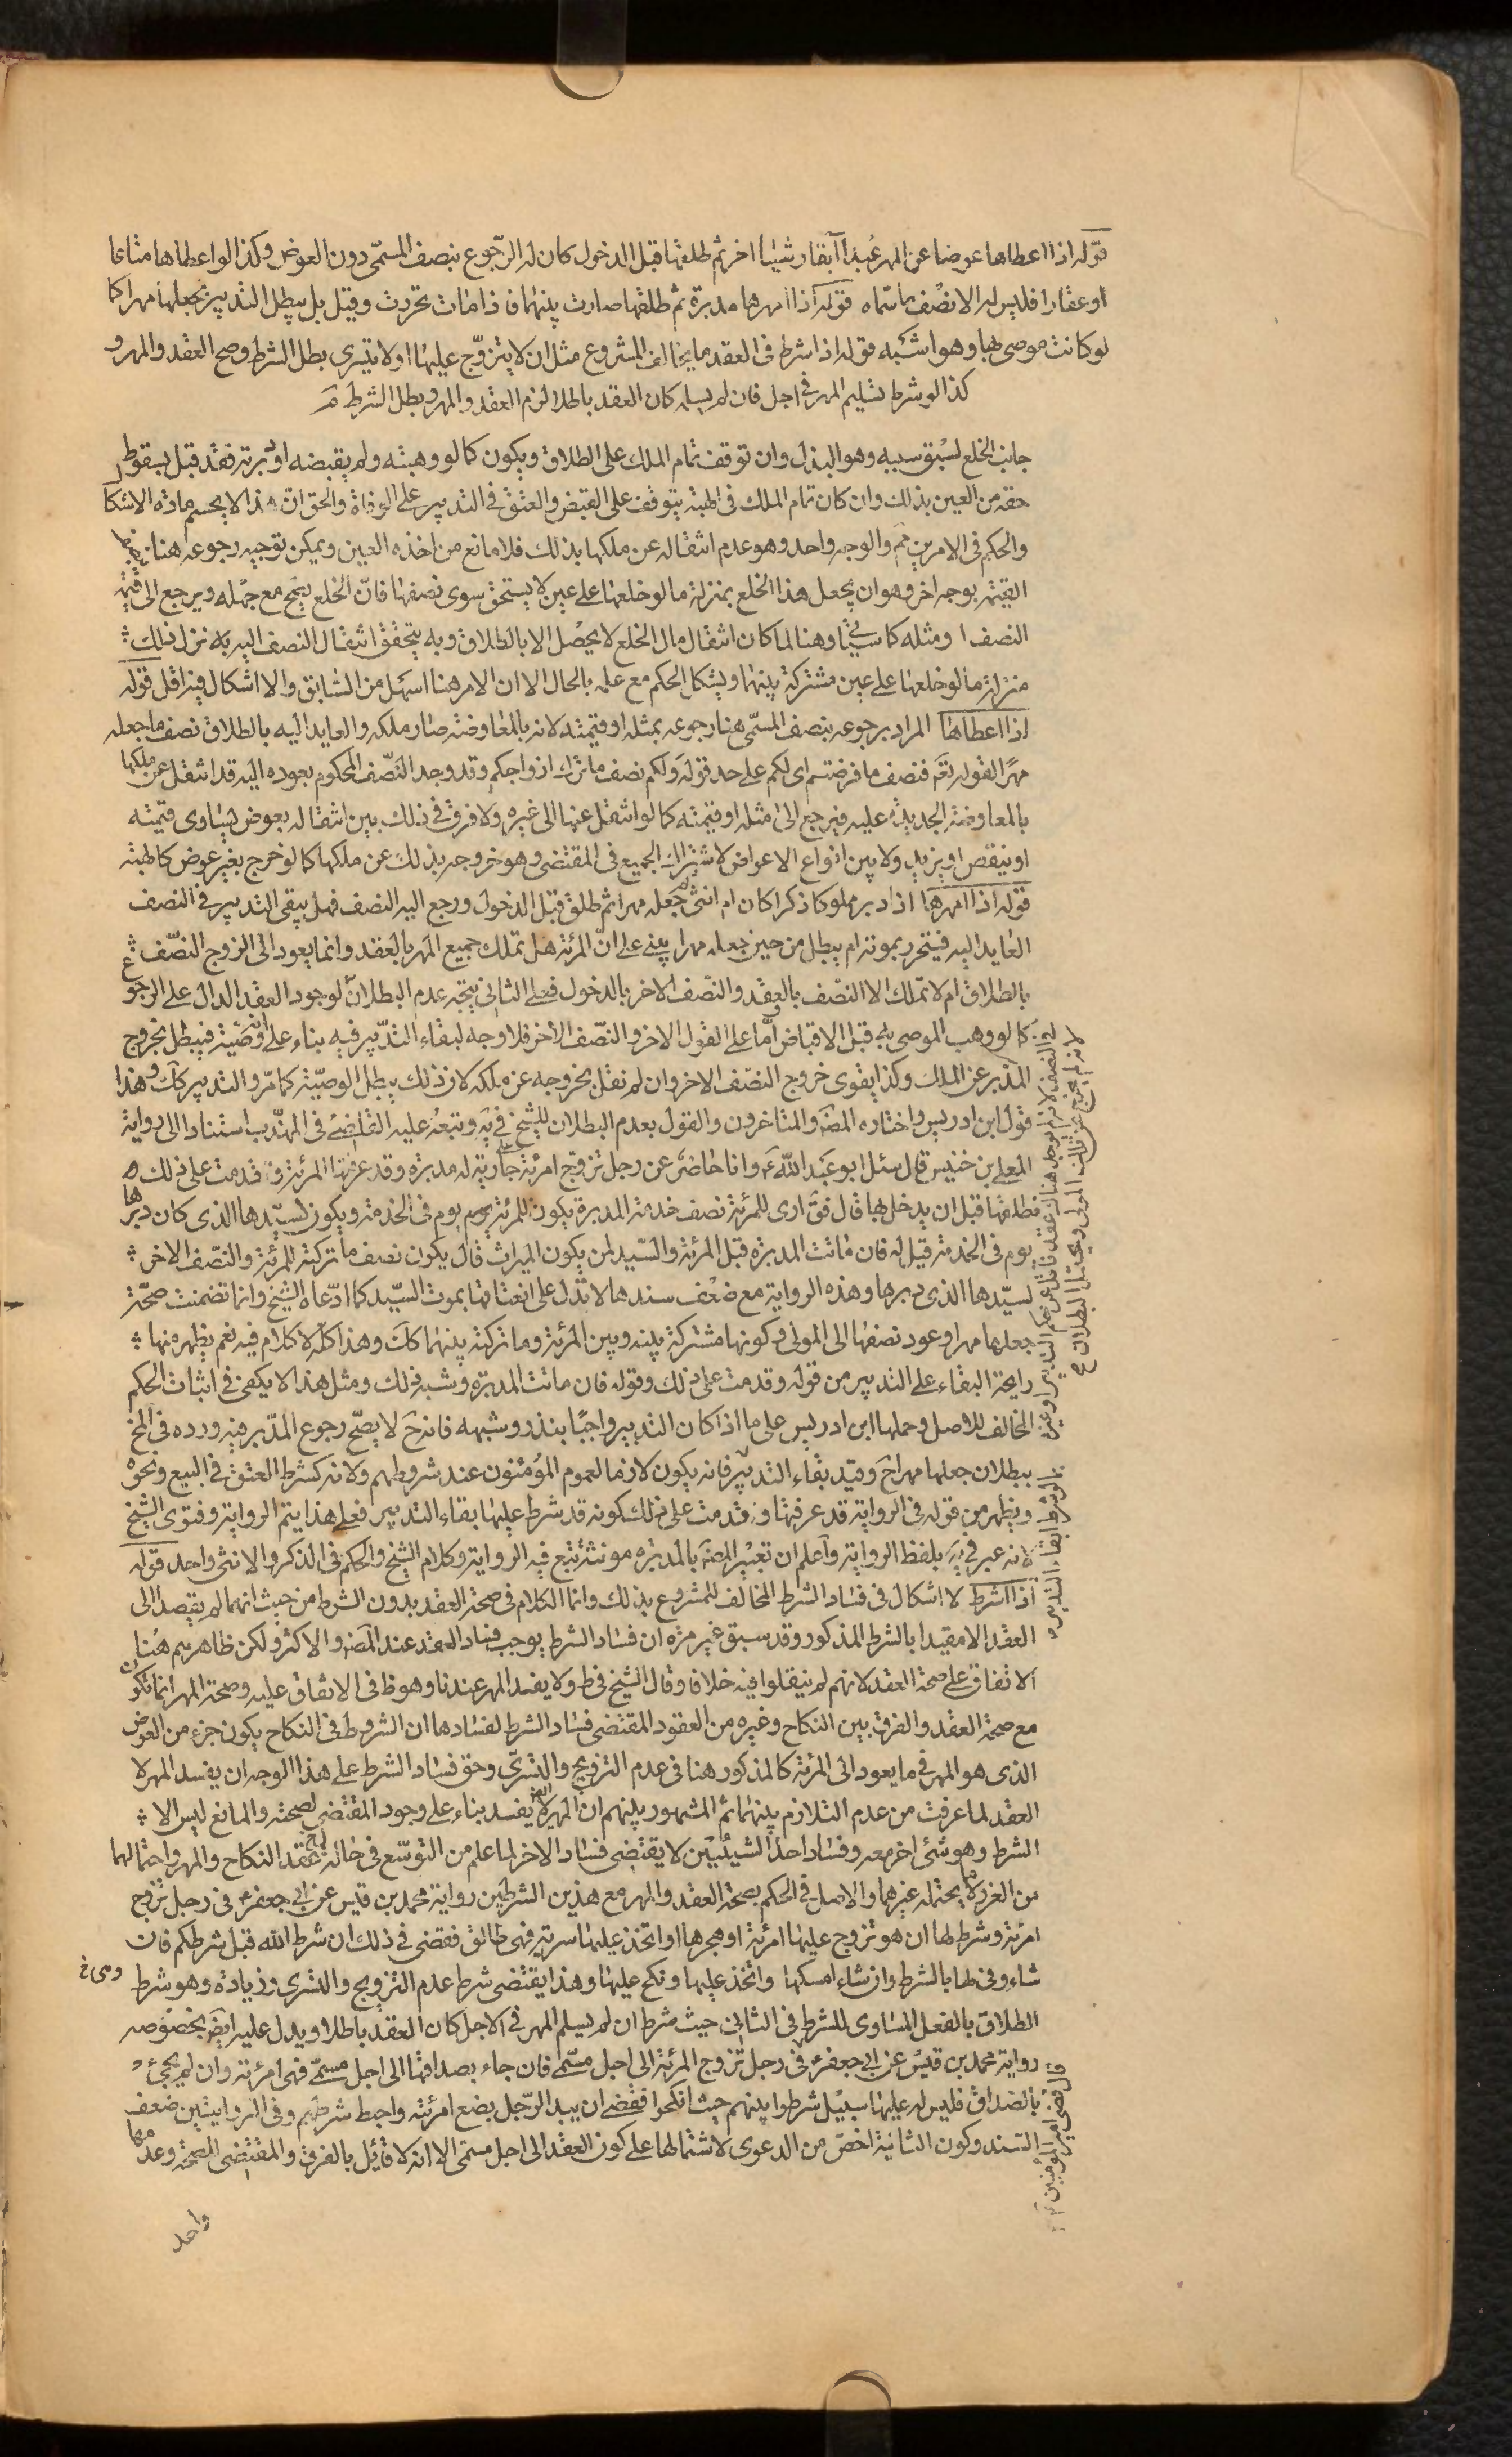 قوله اذا اعطاها عوضا عن المهر عبدا آبقا و شيئا اخر ثم طلقها قبل الدخول كان له الرجوع بنصف المسمى دون العوض وكذا لو اعطاها متاعا
او عقارا فليس له الا نصف ما سماه قوله اذا امهرها مدبرة ثم طلقها صارت بينهما فاذا مات تحررت وقيل بل يبطل التدبير بجعلها مهرا كما
لو كانت موصى بها وهو اشبه قوله اذا شرط في العقد ما يخالف المشروع مثل ان لا يتزوج عليها او لا يتسرى بطل الشرط وصح العقد والمهر و
كذا لو شرط تسليم المهر في اجل فان لم يسلمه كان العقد باطلا لزم العقد والمهر وبطل الشرط
جانب الخلع لسبق سببه وهو البذل وان توقف تمام الملك على الطلاق ويكون كما لو وهبته ولم يقبضه او دبرته فقد قيل بسقوط
حقه من العين بذلك وان كان تمام الملك في الهبة يتوقف على القبض والعتق في التدبير على الوفاة والحق ان هذا لا يحسم مادة الاشكا
والحكم في الامرين ثم والوجه واحد وهو عدم انتقاله عن ملكها بذلك فلا مانع من اخذه العين ويمكن توجيه رجوعه هنا
القيمة بوجه اخر وهو ان يجعل هذا الخلع بمنزلة ما لو خلعها على عين لا يستحق سوى نصفها فان الخلع يصح مع جهله ويرجع الى قيمة
النصف او مثله كما سيأتي وهنا لما كان انتقال مال الخلع لا يحصل الا بالطلاق وبه يتحقق انتقال النصف اليه به نزل ذلك
منزلة ما لو خلعها على عين مشتركة بينهما ويشكل الحكم مع علمه بالحال الا ان الامر هنا اسهل من السابق والاشكال فيه اقل قوله
اذا اعطاها المراد برجوعه بنصف المسمى هنا رجوعه بمثله او قيمته لانه بالمعاوضة صار ملكه والعايد اليه بالطلاق نصف ما جعله
مهرا لقوله تعم فنصف ما فرضتم اى لكم على حد قوله ولكم نصف ما ترك ازواجكم وقد وجد النصف المحكوم بعوده اليه قد انتقل عن ملكها
بالمعاوضة الجديدة عليه فيرجع الى مثله او قيمته كما لو انتقل عنها الى غيره ولا فرق في ذلك بين انتقاله بعوض يساوى قيمته
او ينقص او يزيد ولا بين انواع الاعواض لاشتراك الجميع في المقتضى وهو خروجه بذلك عن ملكها كما لو خرج بغير عوض كالهبة
قوله اذا امهرها اذا دبر مملوكا ذكرا كان ام انثى ثم جعله مهرا ثم طلق قبل الدخول ورجع اليه النصف فهل يبقى التدبير في النصف
العايد اليه فيتحرر بموته ام يبطل من حين جعله مهرا يبنى على ان المرئة هل تملك جميع المهر بالعقد وانما يعود الى الزوج النصف
بالطلاق ام لا تملك الا النصف بالعقد والنصف الاخر بالدخول فعلى الثانى يتجه عدم البطلان لوجود العقد الدال على الرجوع
كما لو وهب الموصى به قبل الاقباض اما على القول الاخر والنصف الاخر فلا وجه لبقاء التدبير فيه بناء على انه وصية فيبطل بخروج
المدبر عن الملك وكذا يقوى خروج النصف الاخر وان لم نقل بخروجه عن ملكه لان ذلك يبطل الوصية كما مر والتدبير كك وهذا
قول ابن ادريس واختاره المص والمتاخرون والقول بعدم البطلان للشيخ في ية وتبعه عليه القاضى في المهذب استنادا الى رواية
المعلى بن خنيس قال سئل ابو عبد الله ع وانا حاضر عن رجل تزوج امرئة على جارية له مدبرة وقد عرفتها المرئة وقدمت على ذلك
فطلقها قبل ان يدخل بها قال فق ارى للمرئة نصف خدمة المدبرة يكون للمرئة يوم في الخدمة ويكون لسيدها الذى كان دبرها
يوم في الخدمة قيل له فان ماتت المدبرة قبل المرئة والسيد لمن يكون الميراث قال يكون نصف ما تركته للمرئة والنصف الاخر
لسيدها الذى دبرها وهذه الرواية مع ضعف سندها لا تدل على انعتاقها بموت السيد كما ادعاه الشيخ وانما تضمنت صحة
جعلها مهرا وعود نصفها الى المولى وكونها مشتركة بينه وبين المرئة وما تركته بينهما كك وهذا كله لا كلام فيه نعم يظهر منها
رايحة البقاء على التدبير من قوله وقدمت على ذلك وقوله فان ماتت المدبرة وشبه ذلك ومثل هذا لا يكفى في اثبات الحكم
المخالف للاصل وحملها ابن ادريس على ما اذا كان التدبير واجبا بنذر وشبهه فانه ح لا يصح رجوع المدبر فيه ورده في المخ
ببطلان جعلها مهرا ح وقيد بقاء التدبير فانه يكون لازما لعموم المؤمنون عند شروطهم ولانه كشرط العتق في البيع ونحوه
ويظهر من قوله في الرواية قد عرفتها وقدمت على ذلك كونه قد شرط عليها بقاء التدبير فعلى هذا يتم الرواية وفتوى الشيخ
لانه عبر في ية بلفظ الرواية واعلم ان تعبير المص بالمدبرة مونثة تبع فيه الرواية وكلام الشيخ والحكم في الذكر والانثى واحد قوله
اذا اشرط لا اشكال في فساد الشرط المخالف للمشروع بذلك وانما الكلام في صحة العقد بدون الشرط من حيث انهما لم يقصدا الى
العقد الا مقيدا بالشرط المذكور وقد سبق غير مرة ان فساد الشرط يوجب فساد العقد عند المص والاكثر ولكن ظاهرهم هنا
الاتفاق على صحة العقد لانهم لم ينقلوا فيه خلافا وقال الشيخ في ط ولا يفسد المهر عندنا وهو ظ في الاتفاق عليه وصحة المهر انما تكون
مع صحة العقد والفرق بين النكاح وغيره من العقود المقتضى فساد الشرط لفسادها ان الشروط في النكاح يكون جزء من العوض
الذى هو المهر في ما يعود الى المرئة كالمذكور هنا في عدم التزويج والتسرى وحق فساد الشرط على هذا الوجه ان يفسد المهر لا
العقد لما عرفت من عدم التلازم بينهما ثم المشهور بينهم ان المهر ايض لا يفسد بناء على وجود المقتضى لصحته والمانع ليس الا
الشرط وهو شئ اخر معه وفساد احد الشيئين لا يقتضى فساد الاخر لما علم من التوسع في حال عقد النكاح والمهر واحتمالها
من الغرر ما لا يحتمله غيرهما والاصل في الحكم بصحة العقد والمهر مع هذين الشرطين رواية محمد بن قيس عن ابى جعفر ع في رجل تزوج
امرئة وشرط لها ان هو تزوج عليها امرئة او هجرها او اتخذ عليها سرية فهى طالق فقضى في ذلك ان شرط الله قبل شرطكم فان
شاء وفى لها بالشرط وان شاء امسكها واتخذ عليها ونكح عليها وهذا يقتضى شرط عدم التزويج والتسرى وزيادة وهو شرط
الطلاق بالفعل المساوى للشرط في الثانى حيث شرط ان لم يسلم المهر في الاجل كان العقد باطلا ويدل عليه ايض بخصوصه
رواية محمد بن قيس عن ابى جعفر ع في رجل تزوج المرئة الى اجل مسمى فان جاء بصداقها الى اجل مسمى فهى امرئته وان لم يجئ
بالصداق فليس له عليها سبيل شرطوا بينهم حيث انكحوا فقضى ان بيد الرجل بضع امرئته واحبط شرطهم وفى الروايتين ضعف
السند وكون الثانية اخص من الدعوى لاشتمالها على كون العقد الى اجل مسمى الا انه لا قائل بالفرق والمقتضى للصحة وعدمها
واحد
قال قضى امير المؤمنين ع